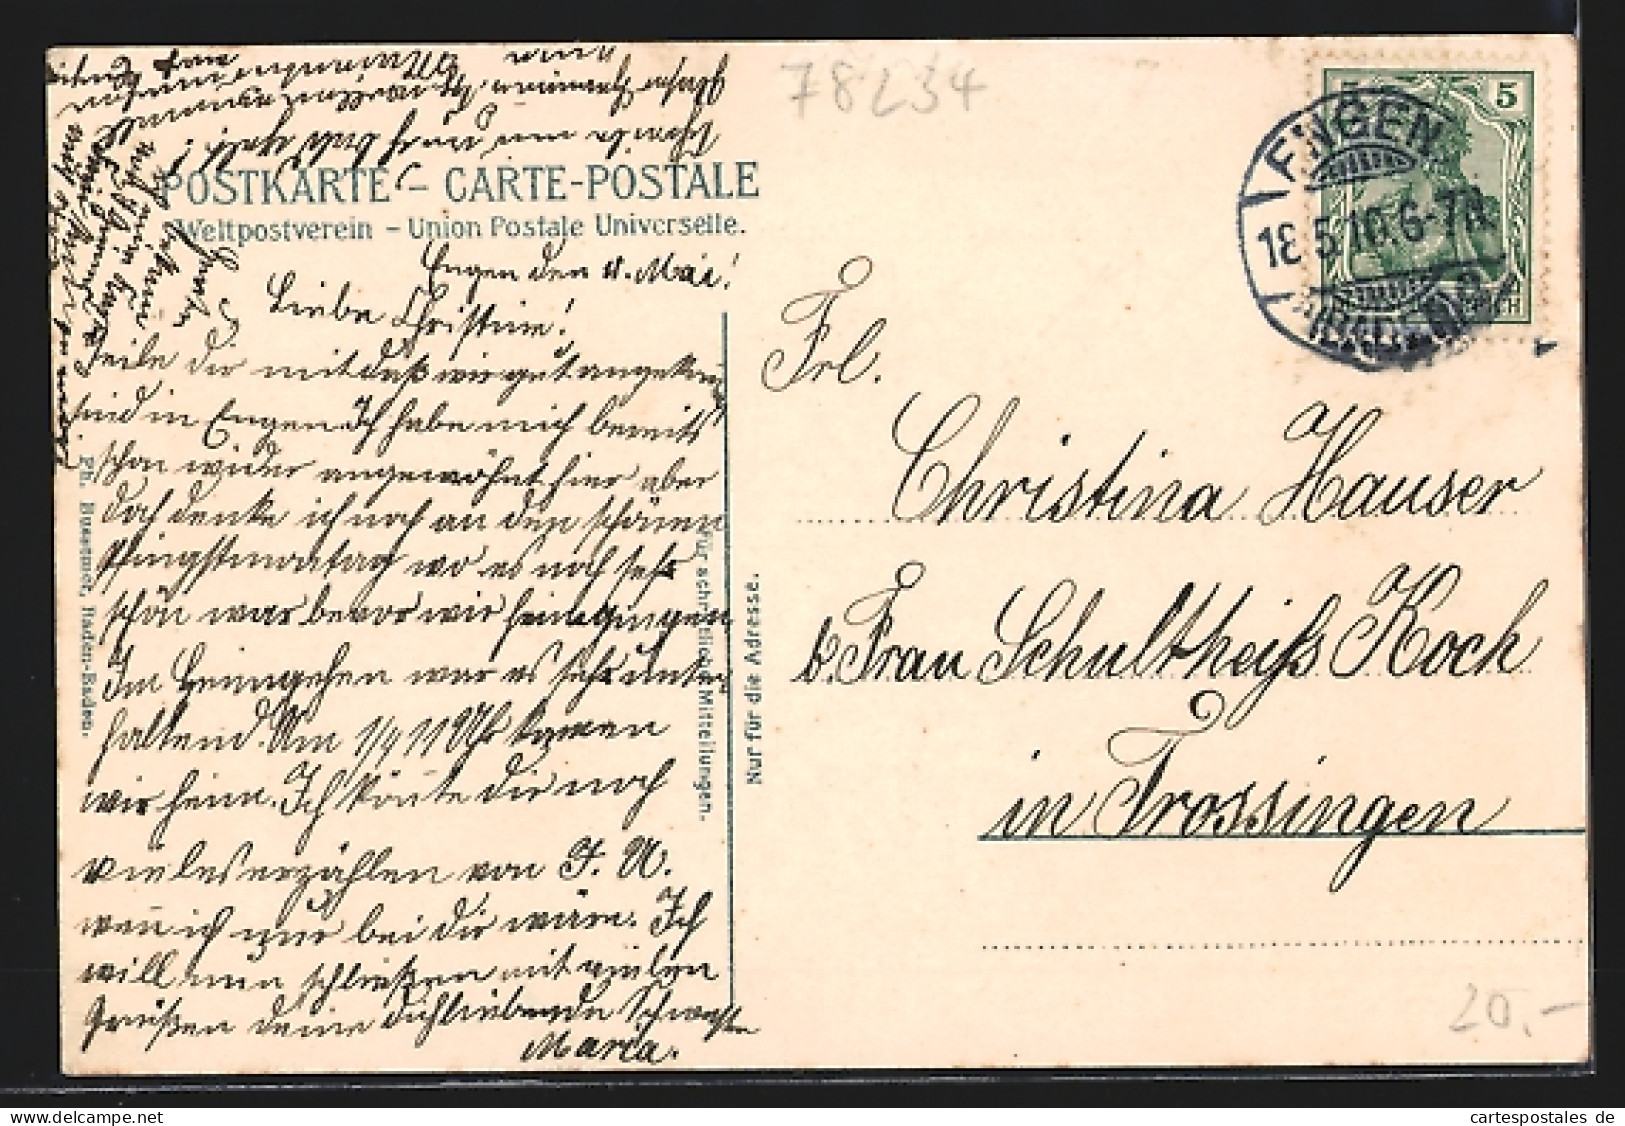 78234
POSTKARTE – CARTE-POSTALE
Weltpostverein – Union Postale Universelle.
Engen den 18. Mai!
Liebe Christine!
Teile dir mit daß wir gut angekom
sind in Engen. Ich habe mich bereits
schon wider angewöhnt hier aber
doch denke ich noch an den schönen
Pfingstmontag wo es noch sehr
schön war bevor wir heimgingen
Im heimgehen war es sehr unter
haltend. Um 1/4 11 Uhr kamen
wir heim. Ich könte dir noch
vieles erzählen von
wen ich nur bei dir wäre. Ich
will nun schließen mit vielen
Grüßen deine dichliebende Schweste
Maria.
Ph. Bussemer, Baden-Baden.
Für schriftliche Mitteilungen.
Nur für die Adresse.
ENGEN
18.5.10.6-7N.
(BADEN)
5 5
Frl.
Christina Hauser
b. Frau Schultheiß Koch
in Trossingen
20.-
cartespostales de